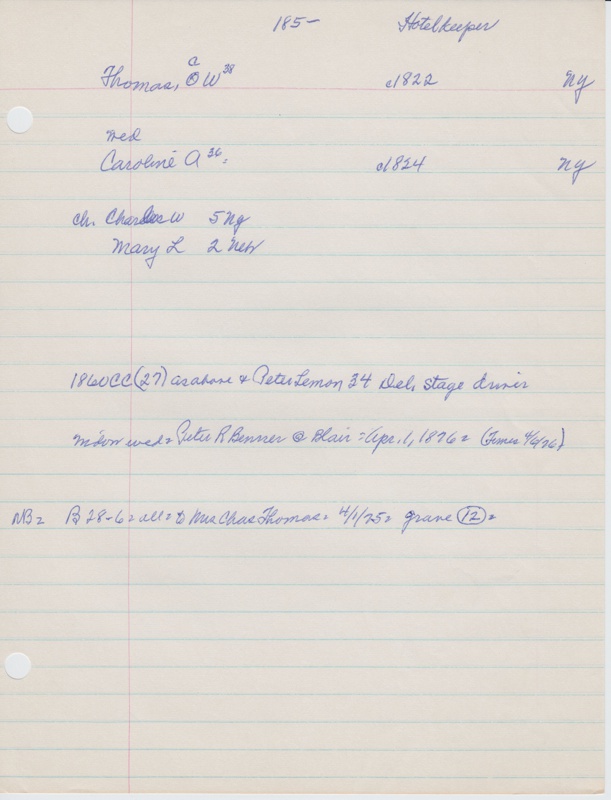 185- Hotelkeeper
C
Thomas, O W 38 c1822 Ny
wed
Caroline A 36: c1824 Ny
ch. Charles W 5 Ny
Mary L 2 Neb
1860CC (27) as above & Peter Lemon 34 Del, stage driver
wed = Peter R Benner @ Blair = Apr. 1, 1876 = (Times 4/6/76)
NB = B 28-6 = all = to Mrs Chas Thomas = 4/1/25 = grave 12 =